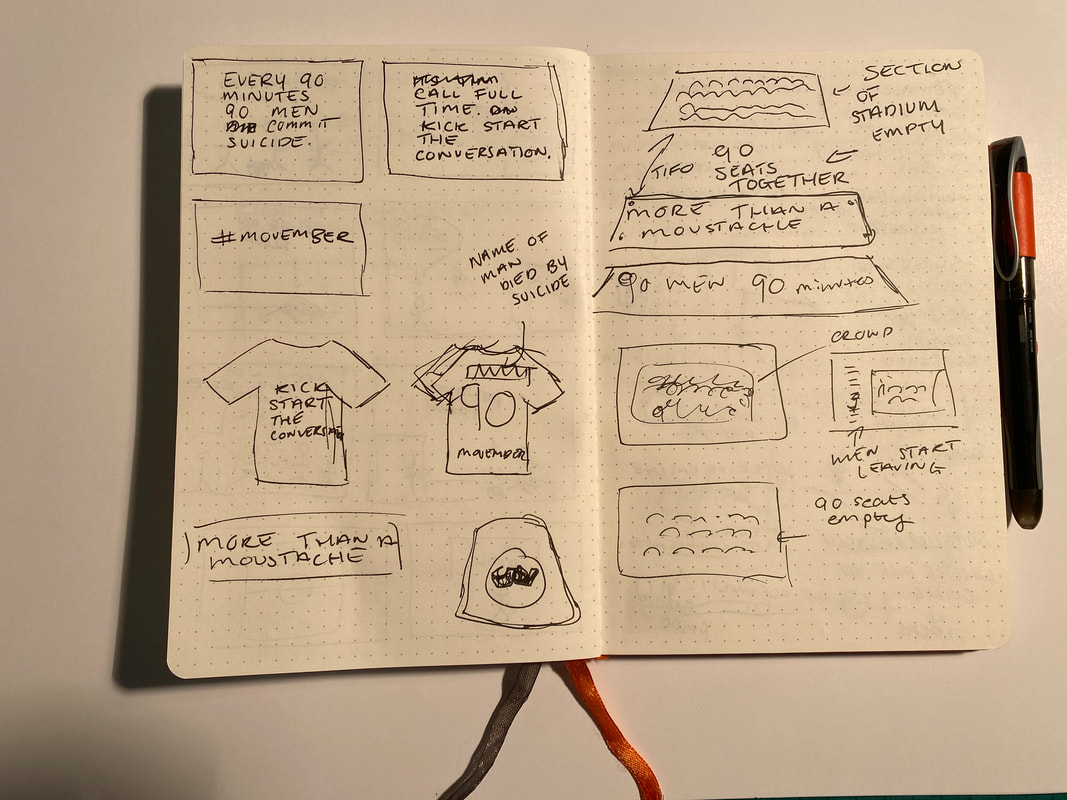 EVERY 90
MINUTES
90 MEN
COMMIT
SUICIDE.
CALL FULL
TIME.
KICK START
THE
CONVERSATION.
#MOVEMBER
NAME OF
MAN
DIED BY
SUICIDE
KICK
START
THE
90
MOVEMBER
MORE THAN A
MOUSTACHE
SECTION
OF
STADIUM
EMPTY
TIFO
90
SEATS
TOGETHER
MORE THAN A
MOUSTACHE
90 MEN 90 minutes
CROWD
MEN START
LEAVING
90 seats
empty